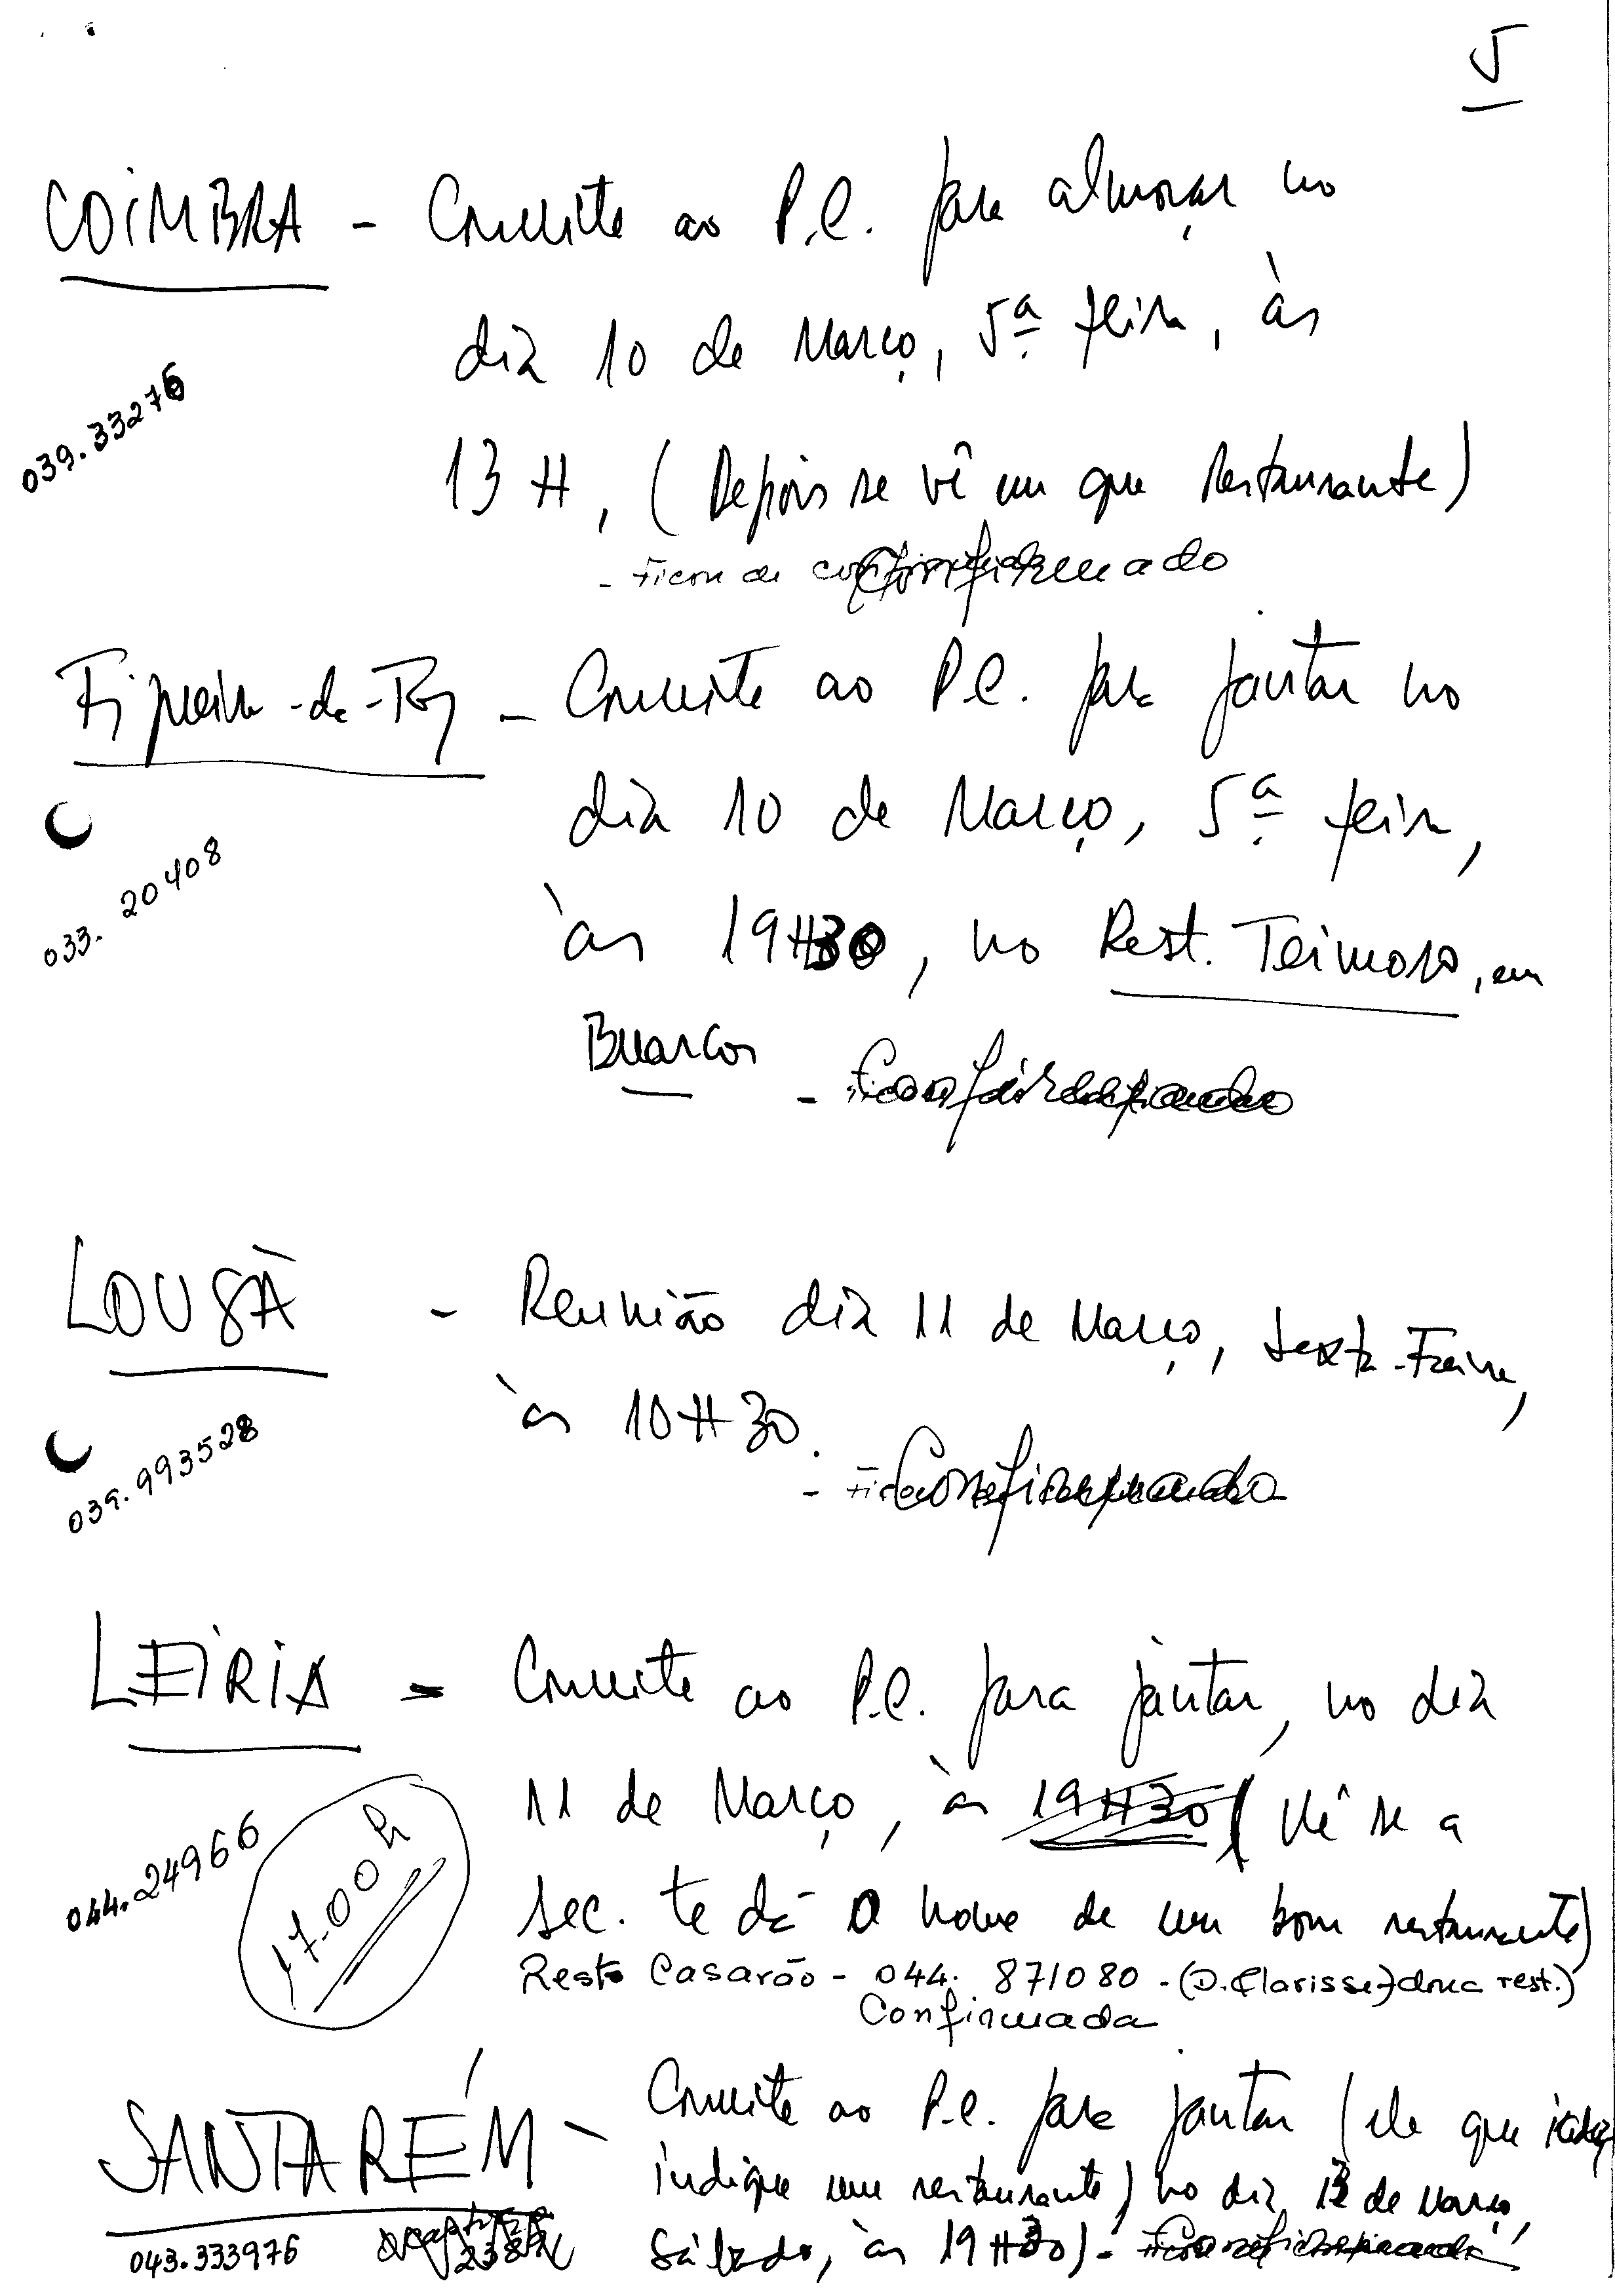 5
COIMBRA - Convite ao P.C. para almoçar no
dia 10 de Março, 5ª feira, às
039.33276
13H, (Depois se vê em que restaurante)
- Ficou de confirmado
Figueira-da-Foz - Convite ao P.C. para jantar no
dia 10 de Março, 5ª feira,
033. 20408
às 19H30, no Rest. Teimoso, em
Buarcos - Confirmado
LOUSÃ - Reunião dia 11 de Março, sexta-Feira,
às 10H30.
039.993528
- Confirmado
LEIRIA - Convite ao P.C. para jantar, no dia
11 de Março, às 19H30 (Vê se a
044.24966
17.00h
sec. te dá o nome de um bom restaurante)
Rest. Casarão - 044. 871080 - (D. Clarisse) dona rest.)
Confirmada
SANTARÉM - Convite ao P.C. para jantar (ele que
indique um restaurante) no dia 12 de Março,
043.333976
Sábado, às 19H30) -